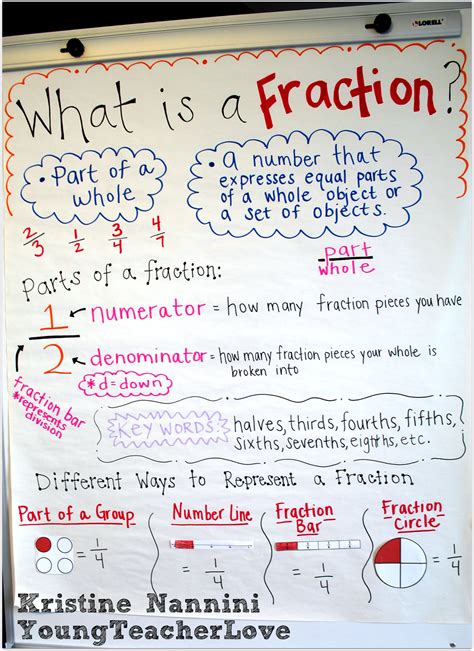 LORELL
What is a Fraction?
• Part of a
whole
• a number that
expresses equal parts
of a whole object or
a set of objects.
2/3 1/2 3/4 4/7
part
whole
Parts of a fraction:
1 numerator = how many fraction pieces you have
2 denominator = how many fraction pieces your whole is
broken into
*d=down
fraction bar
*represents
division
KEY WORDS: halves, thirds, fourths, fifths,
sixths, sevenths, eighths, etc.
Different Ways to Represent a Fraction
Part of a Group
Number Line
Fraction
Bar
Fraction
Circle
= 1/4
= 1/4
= 1/4
= 1/4
Kristine Nannini
YoungTeacherLove